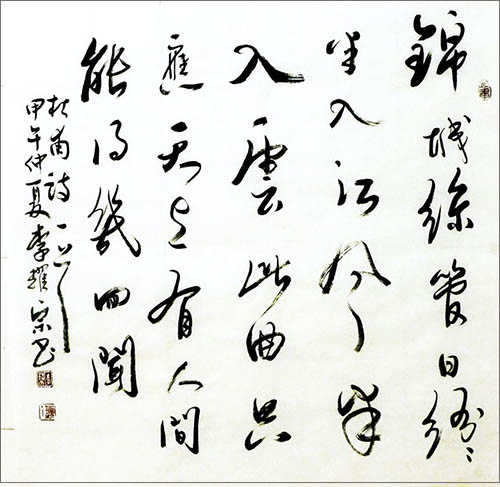 錦城絲管日紛〻
半入江風半
入雲此曲只
應天上有人間
能得幾回聞
杜甫詩一首
甲午仲夏李耀宗书